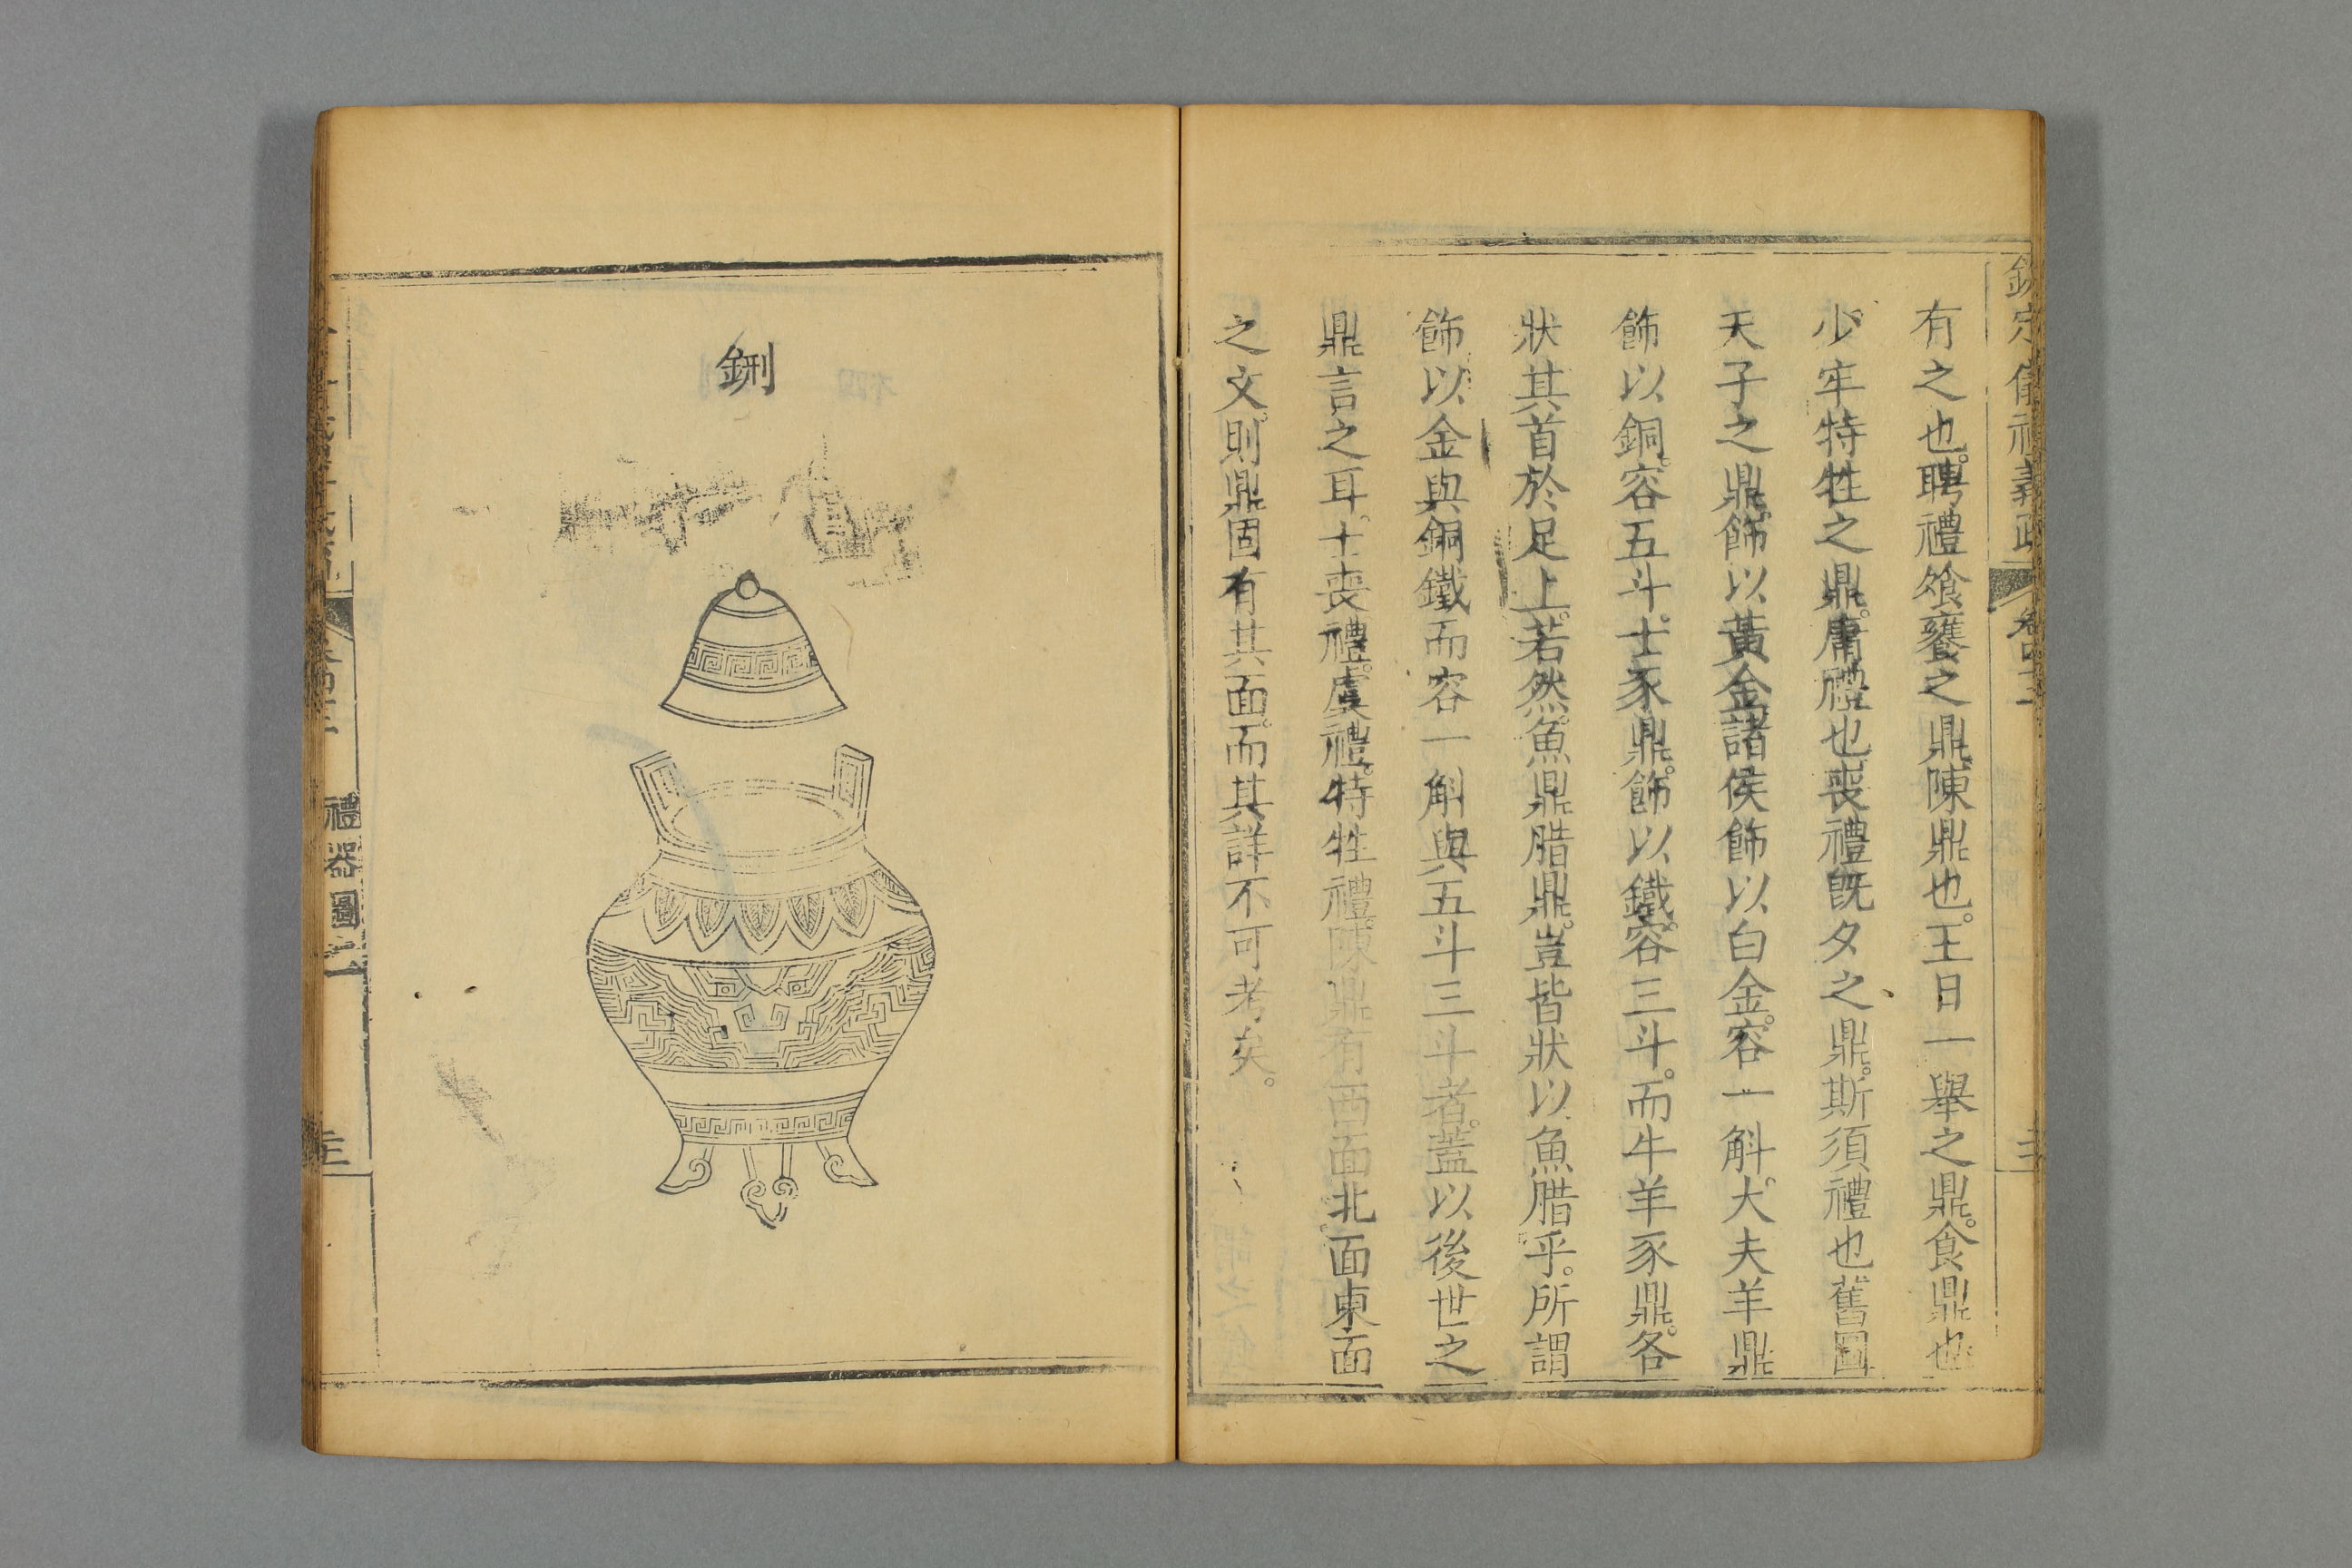 有之也。聘禮飧饔之鼎。陳鼎也。王日一舉之鼎。食鼎也
少牢特牲之鼎。庸禮也。喪禮旣夕之鼎。斯須禮也舊圖
天子之鼎。飾以黃金諸侯飾以白金。容一斛。大夫羊鼎
飾以銅。容五斗。士豕鼎。飾以鐵。容三斗。而牛羊豕鼎。各
狀其首於足上。若然。魚鼎腊鼎。豈皆狀以魚腊乎。所謂
飾以金與銅鐵而容一斛與五斗三斗者。蓋以後世之
鼎言之耳。士喪禮。虞禮。特牲禮。陳鼎有西面北面東面
之文。則鼎固有其面。而其詳不可考矣。
鉶
禮器圖二